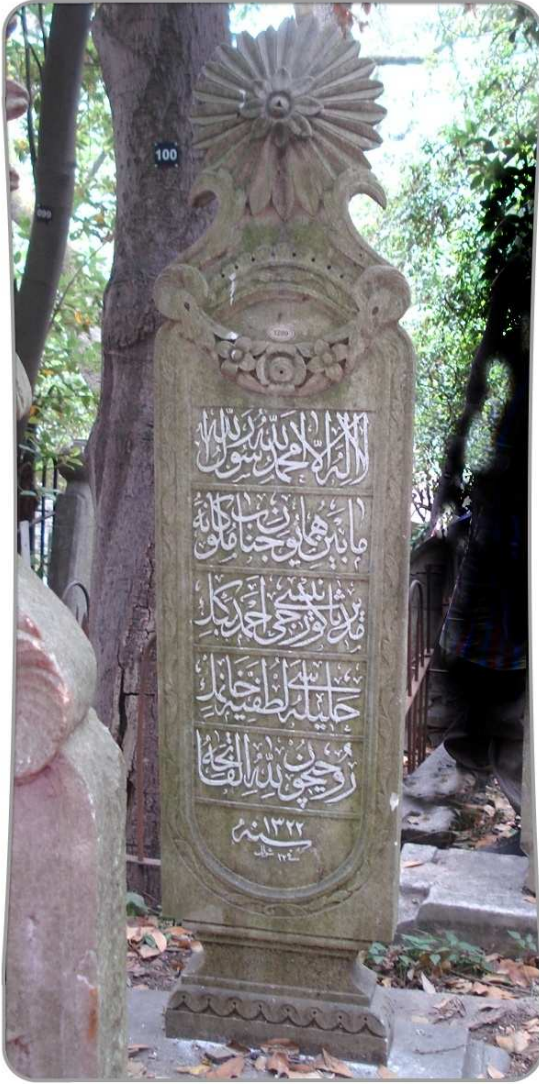 100
099
1299
لا اله الا الله محمد رسول الله
مابين همايون جناب ملوكانه
مديرى احمد بك
حليله سى لطفيه خانمك
روحيچون لله الفاتحه
سنه ١٣٢٢